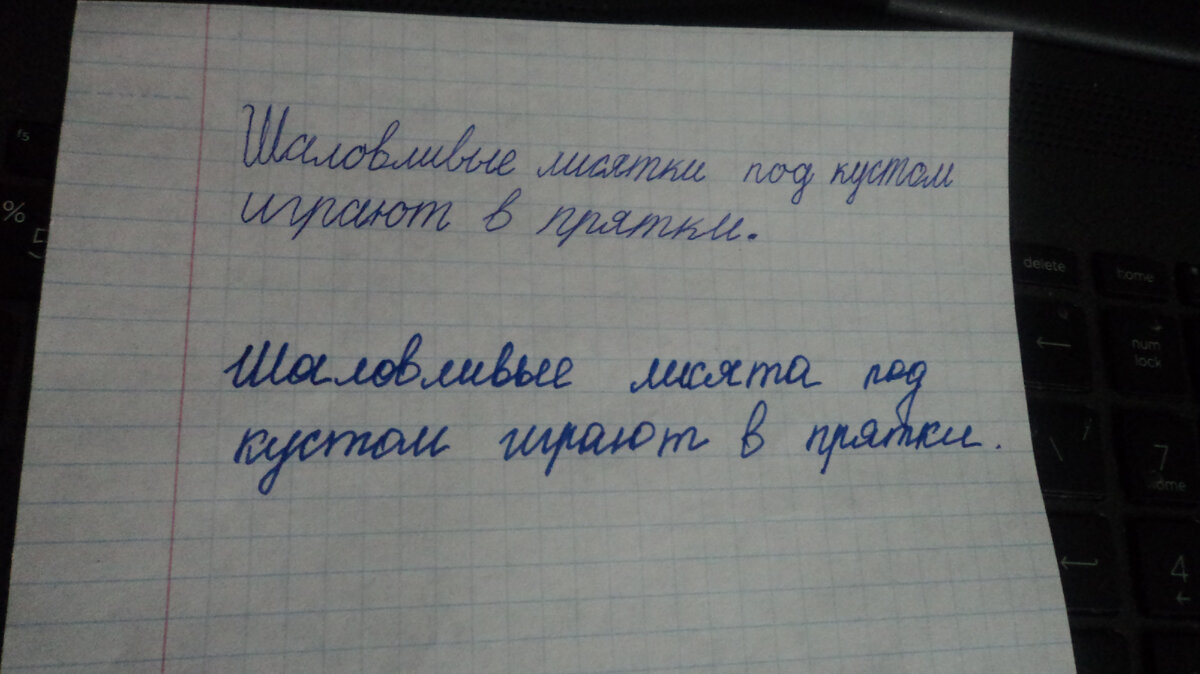 Шаловливые лисятки под кустом
играют в прятки.
Шаловливые лисята под
кустом играют в прятки.
f5
%
5
delete
home
num
lock
7
home
4